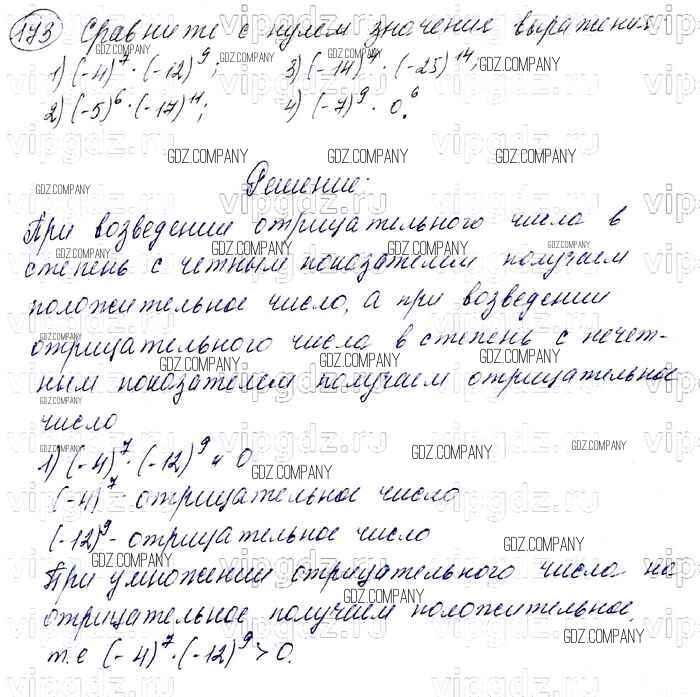 173 Сравните с нулем значение выражения
1) (-4)⁷ · (-12)⁹; 3) (-14)⁴ · (-25)¹⁴;
2) (-5)⁶ · (-17)¹¹; 4) (-7)⁹ · 0⁶.
Решение:
При возведении отрицательного числа в
степень с четным показателем получаем
положительное число, а при возведении
отрицательного числа в степень с нечет-
ным показателем получаем отрицательное
число
1) (-4)⁷ · (-12)⁹ и 0
(-4)⁷ - отрицательное число
(-12)⁹ - отрицательное число
При умножении отрицательного числа на
отрицательное получаем положительное,
т.е (-4)⁷ · (-12)⁹ > 0.